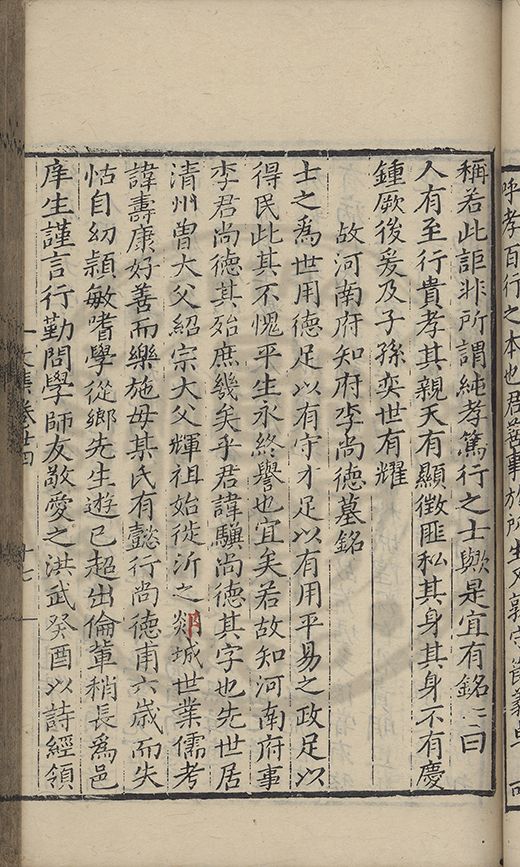 呼孝百行之本也君善事於所生又敦宗睦
稱若此詎非所謂純孝篤行之士歟是宜有銘〻曰
人有至行貴孝其親天有顯徵匪私其身其身不有慶
鍾厥後爰及子孫奕世有耀
故河南府知府李尚德墓銘
士之為世用德足以有守才足以有用平易之政足以
得民此其不愧平生永終譽也宜矣若故知河南府事
李君尚德其殆庶幾矣乎君諱驥尚德其字也先世居
清州曾大父紹宗大父輝祖始徙沂之郯城世業儒考
諱壽康好善而樂施母某氏有懿行尚德甫六歲而失
怙自幼穎敏嗜學從鄉先生遊已超出倫輩稍長為邑
庠生謹言行勤問學師友敬愛之洪武癸酉以詩經領
文集卷廿四
十七